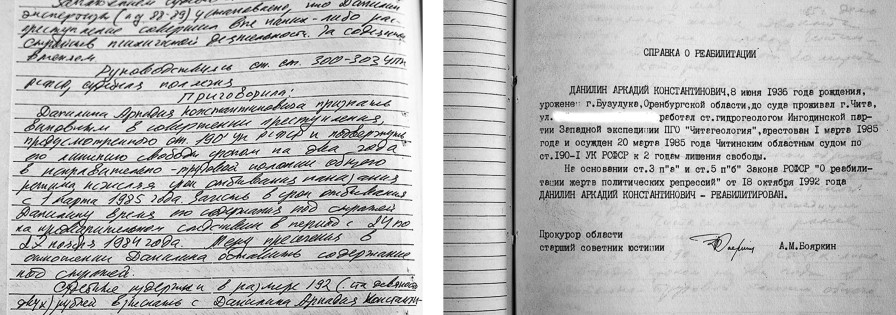 Заключением
экспертизы (л.д. 88-89) установлено, что Данилин
преступление совершил вне каких-либо рас-
стройств психической деятельности. За содеянное
вменяем
Руководствуясь ст. ст. 300-303 УПК
РСФСР, судебная коллегия
Приговорила:
Данилина Аркадия Константиновича признать
виновным в совершении преступления,
предусмотренного ст. 190-1 УК РСФСР и подвергнуть
его лишению свободы сроком на два года
в исправительно-трудовой колонии общего
режима исчисляя срок отбывания наказания
с 1 марта 1985 года. Зачесть в срок отбывания
Данилину время его содержания под стражей
на предварительном следствии в период с 24 по
27 ноября 1984 года. Меру пресечения в
отношении Данилина оставить содержание
под стражей.
Судебные издержки в размере 192 (сто девяносто
два) рублей взыскать с Данилина Аркадия Константи-
СПРАВКА О РЕАБИЛИТАЦИИ
ДАНИЛИН АРКАДИЙ КОНСТАНТИНОВИЧ, 8 июня 1936 года рождения,
уроженец г.Бузулука,Оренбургской области,до суда проживал г.Чита,
ул. работал ст.гидрогеологом Ингодинской пар-
тии Западной экспедиции ПГО "Читагеология",арестован I марта 1985
года и осужден 20 марта 1985 года Читинским областным судом по
ст.190-I УК РСФСР к 2 годам лишения свободы.
На основании ст.3 п"а" и ст.5 п"б" Закона РСФСР "О реабили-
тации жертв политических репрессий" от I8 октября 1992 года
ДАНИЛИН АРКАДИЙ КОНСТАНТИНОВИЧ - РЕАБИЛИТИРОВАН.
Прокурор области
старший советник юстиции А.М.Бояркин